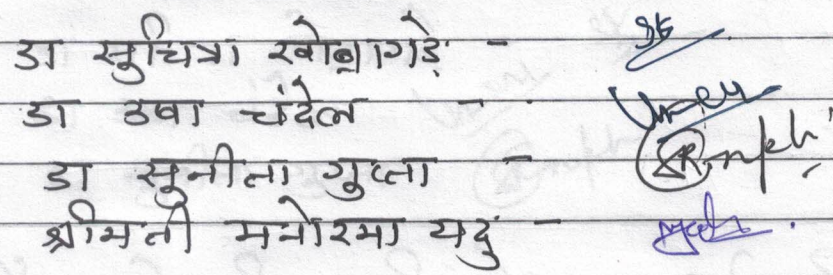 डा सुचित्रा खोब्रागड़े -
डा उषा चंदेल -
डा सुनीता गुप्ता -
श्रीमती मनोरमा यदु -